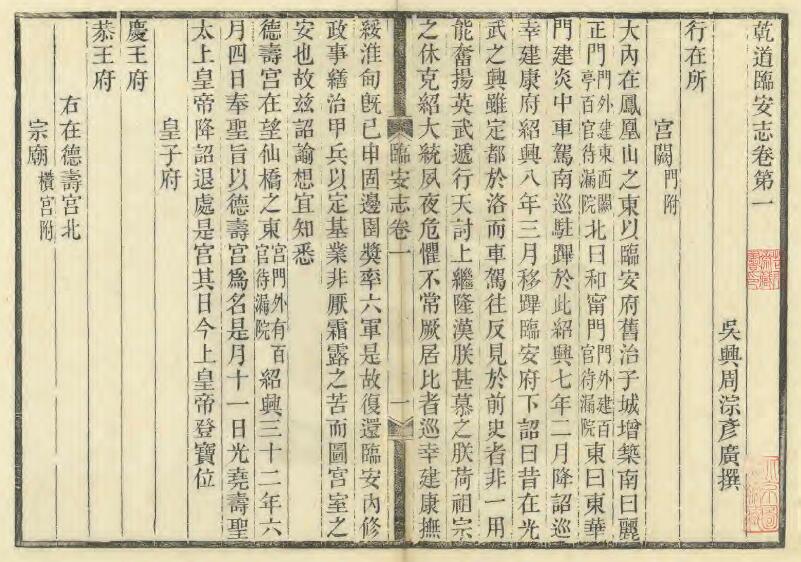 乾道臨安志卷第一
吳興周淙彥廣撰
行在所
宮闕門附
大內在鳳凰山之東以臨安府舊治子城增築南曰麗
正門門外建東西闕亭百官待漏院北曰和甯門門外建百官待漏院東曰東華
門建炎中車駕南巡駐蹕於此紹興七年二月降詔巡
幸建康府紹興八年三月移蹕臨安府下詔曰昔在光
武之興雖定都於洛而車駕往反見於前史者非一用
能奮揚英武遞行天討上繼隆漢朕甚慕之朕荷祖宗
之休克紹大統夙夜危懼不常厥居比者巡幸建康撫
臨安志卷一
一
綏淮甸既已申固邊圉獎率六軍是故復還臨安內修
政事繕治甲兵以定基業非厭霜露之苦而圖宮室之
安也故茲詔諭想宜知悉
德壽宮在望仙橋之東宮門外有百官待漏院紹興三十二年六
月四日奉聖旨以德壽宮爲名是月十一日光堯壽聖
太上皇帝降詔退處是宮其日今上皇帝登寶位
皇子府
慶王府
恭王府
右在德壽宮北
宗廟欑宮附